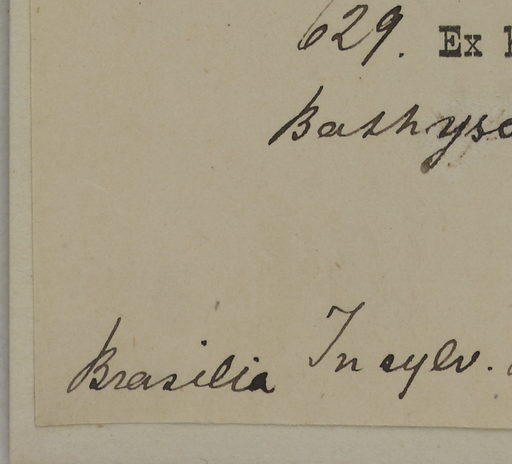 629. Ex
Bathysa
Brasilia In sylv.